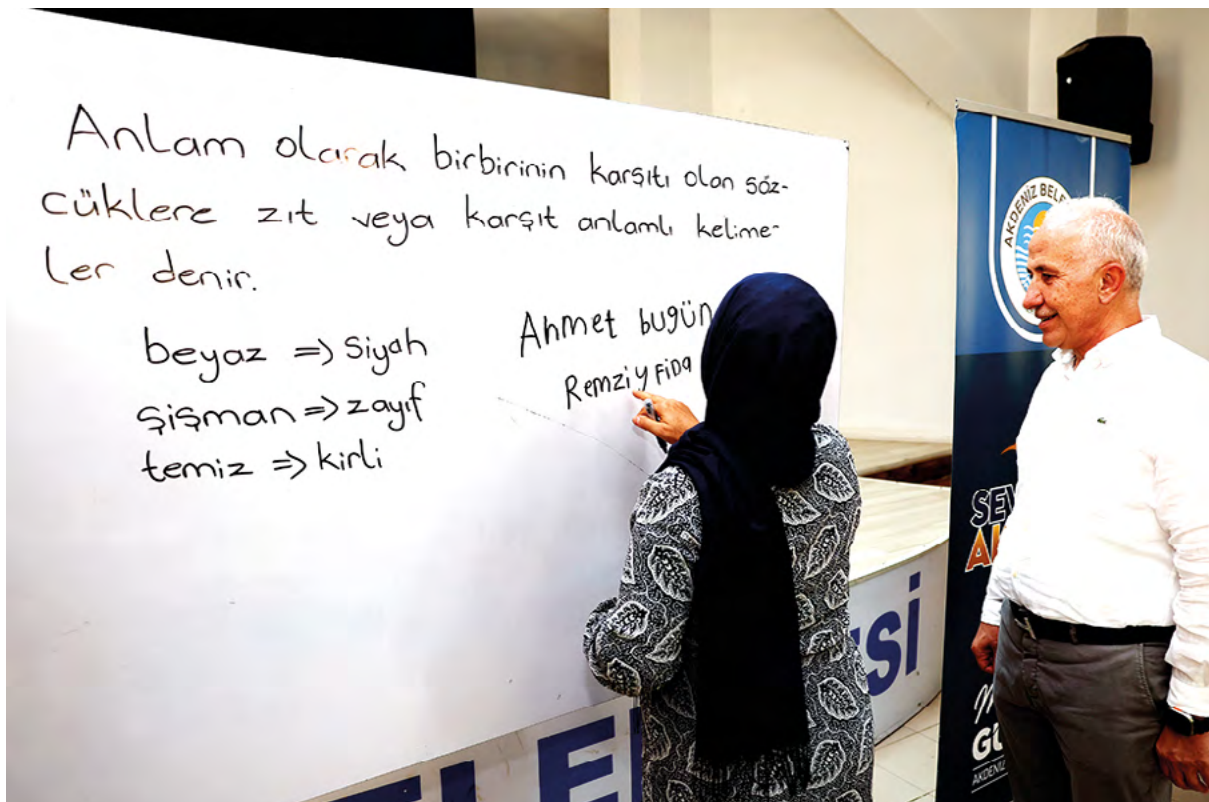 Anlam olarak birbirinin karşıtı olan söz-
cüklere zıt veya karşıt anlamlı kelime-
ler denir.
beyaz => Siyah
şişman => zayıf
temiz => kirli
Ahmet bugün
Remziy FiDa
AKDENİZ BELE
SEV
GÜ
AKDENİZ
ELE
Sİ